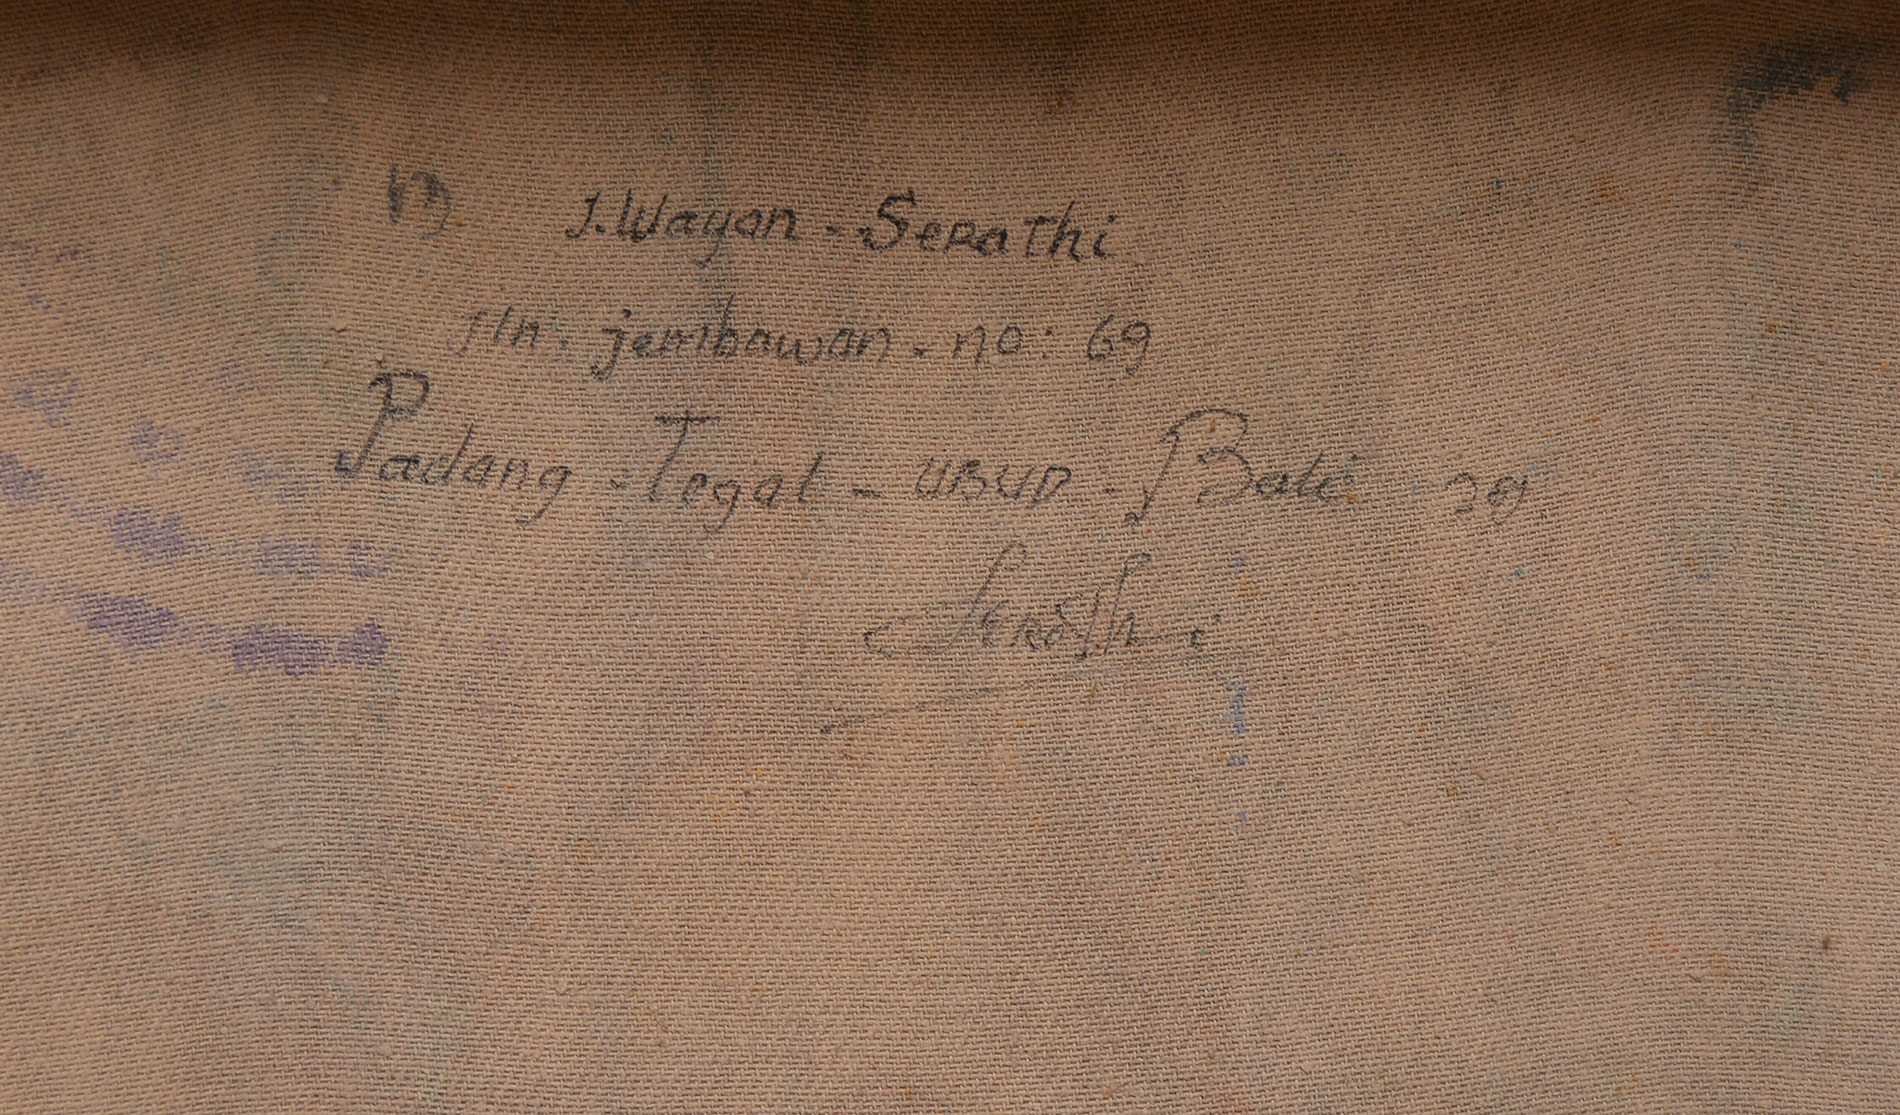 I. Wayan - Serathi
jln. jembawan. no: 69
Padang - Tegal - UBUD - Bali
Serathi